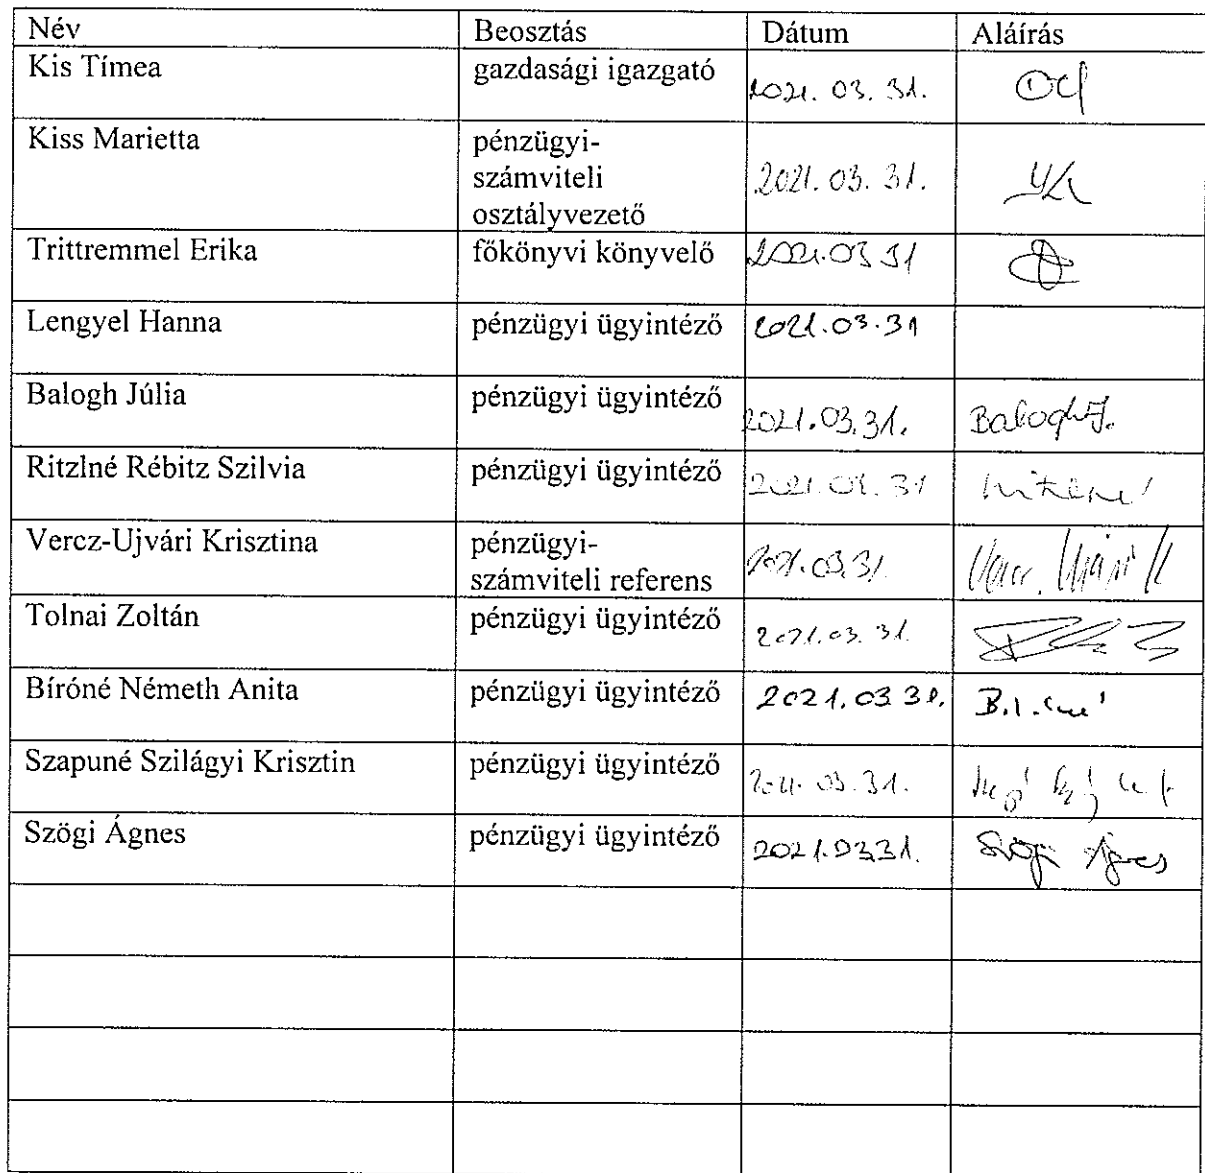 Név Beosztás Dátum Aláírás
Kis Tímea gazdasági igazgató 2021. 03. 31.
Kiss Marietta pénzügyi-
számviteli 2021. 03. 31.
osztályvezető
Trittremmel Erika főkönyvi könyvelő 2021.03 31
Lengyel Hanna pénzügyi ügyintéző 2021.03.31
Balogh Júlia pénzügyi ügyintéző 2021.03.31. Balogh J.
Ritzlné Rébitz Szilvia pénzügyi ügyintéző 2021.03.31
Vercz-Ujvári Krisztina pénzügyi-
számviteli referens 2021.03.31.
Tolnai Zoltán pénzügyi ügyintéző 2021.03.31.
Bíróné Németh Anita pénzügyi ügyintéző 2021.03 31.
Szapuné Szilágyi Krisztin pénzügyi ügyintéző 2021.03.31.
Szögi Ágnes pénzügyi ügyintéző 2021.0331. Szögi Ágnes